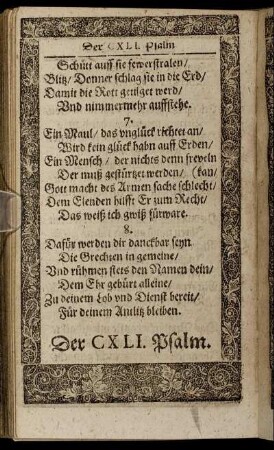 Der CXLI. Psalm
Schütt auff sie fewerstralen/
Blitz/ Donner schlag sie in die Erd/
Damit die Rott getilget werd/
Vnd nimmermehr auffstehe.
7.
Ein Maul/ das vnglück richtet an/
Wird kein glück habn auff Erden/
Ein Mensch/ der nichts denn freveln
Der muß gestürtzet werden/ (kan/
Gott macht des Armen sache schlecht/
Dem Elenden hilfft Er zum Recht/
Das weiß ich gwiß fürware.
8.
Dafür werden dir danckbar seyn
Die Grechten in gemeine/
Vnd rühmen stets den Namen dein/
Dem Ehr gebürt alleine/
Zu deinem Lob vnd Dienst bereit/
Für deinem Antlitz bleiben.
Der CXLI. Psalm.